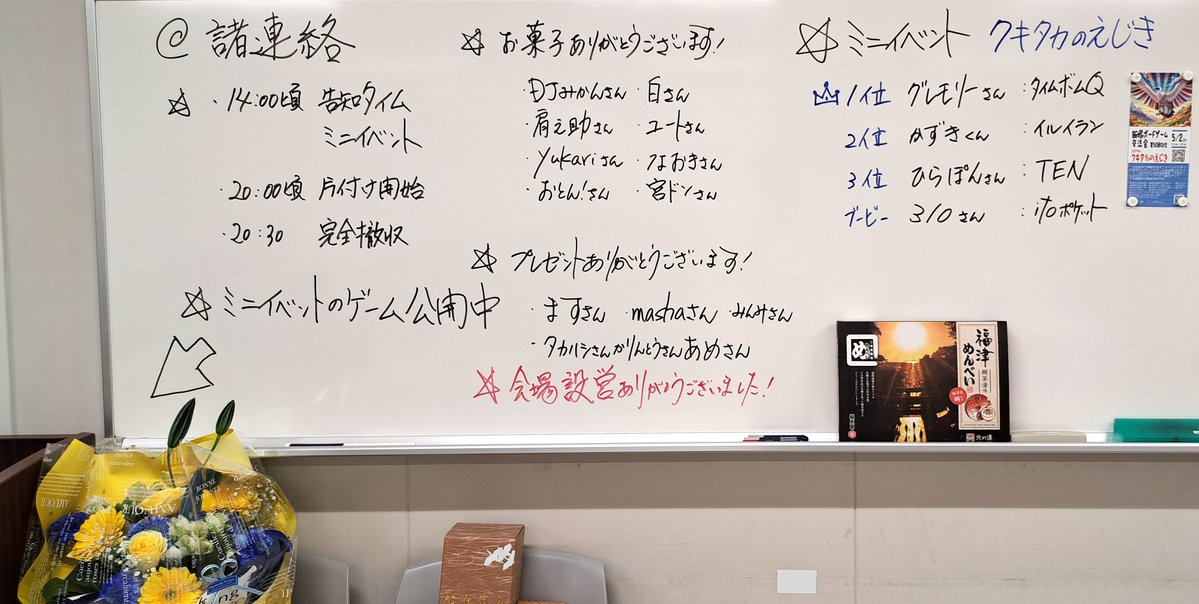 @ 諸連絡
☆ ・14:00頃 告知タイム
ミニイベント
・20:00頃 片付け開始
・20:30 完全撤収
☆ ミニイベントのゲーム公開中
☆ お菓子ありがとうございます!
・DJみかんさん ・白さん
・肩之助さん ・ユートさん
・Yukariさん ・なおきさん
・おとん!さん ・宮ドンさん
☆ プレゼントありがとうございます!
・ますさん ・mashaさん ・みんみさん
・タカハシさんかりんとうさんあめさん
☆ 会場設営ありがとうございました!
☆ ミニイベント クキタカのえじき
1位 グレモリーさん :タイムボムQ
2位 かずきくん :イルイラン
3位 ひらぽんさん :TEN
ブービー 310さん :itoポケット
飯塚ボードゲーム
交流会
5/2
クキタカのえじき
め
福津
めんべい